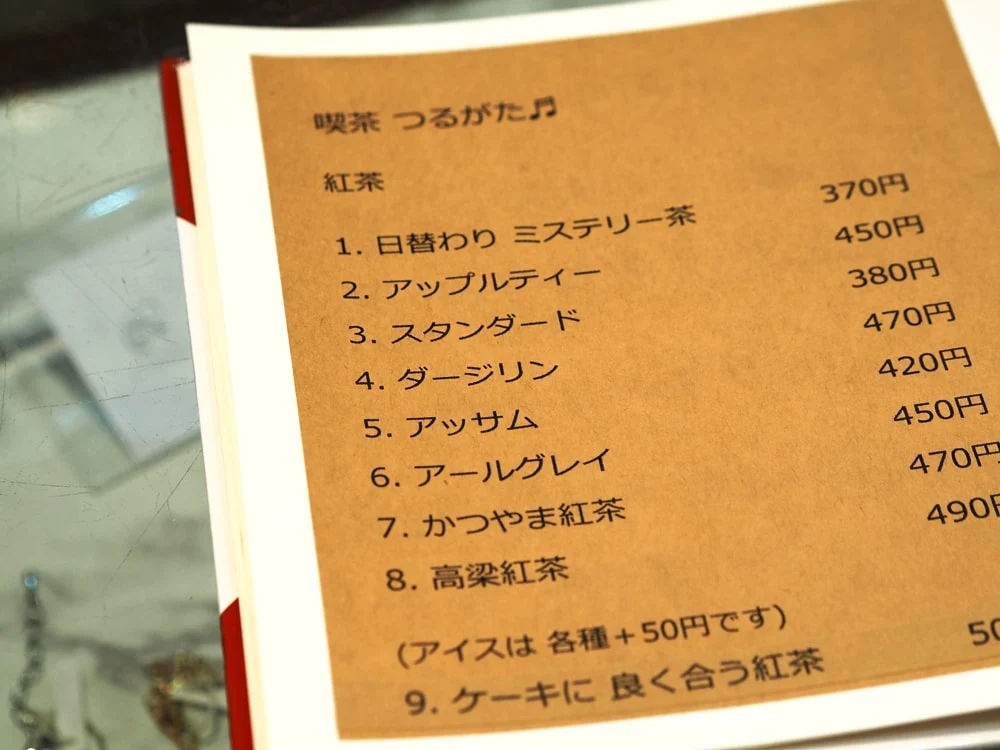 喫茶 つるがた♬
紅茶
1. 日替わり ミステリー茶 370円
2. アップルティー 450円
3. スタンダード 380円
4. ダージリン 470円
5. アッサム 420円
6. アールグレイ 450円
7. かつやま紅茶 470円
8. 高梁紅茶 490円
(アイスは 各種＋50円です)
9. ケーキに 良く合う紅茶